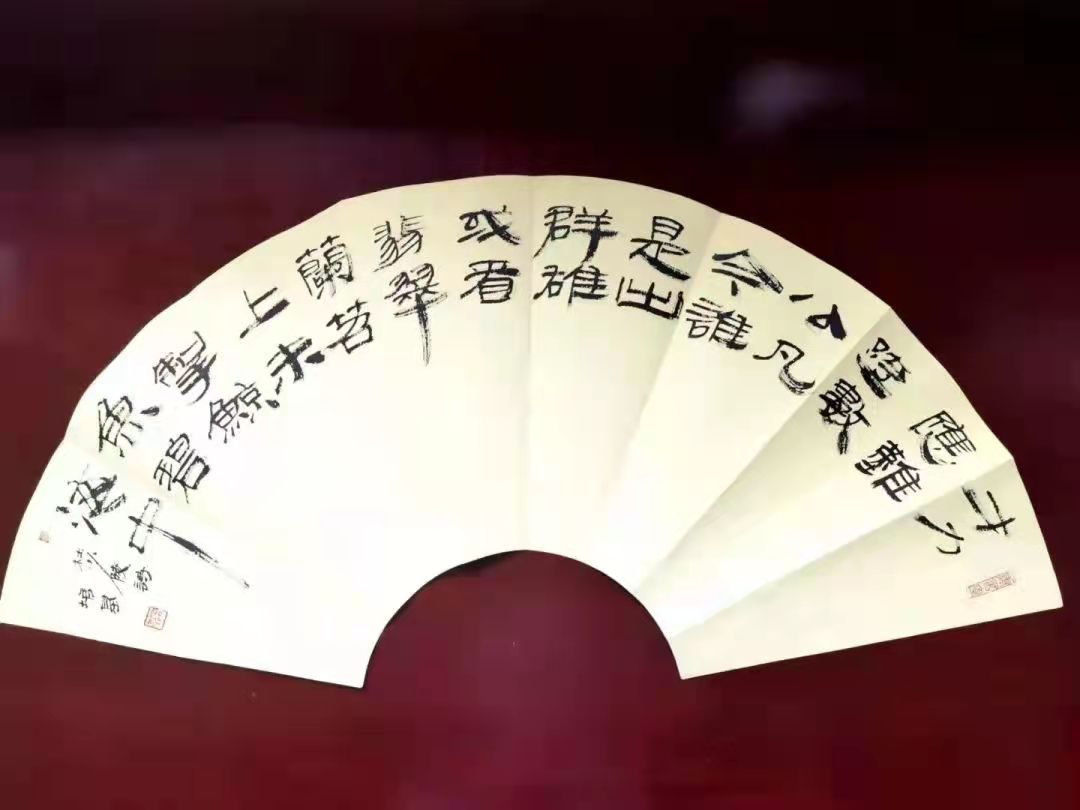 才力
應難
數
公凡
今誰
是出
群雄
或看
翡翠
蘭苕
上未
掣鯨
魚碧
海中
杜少陵詩
培